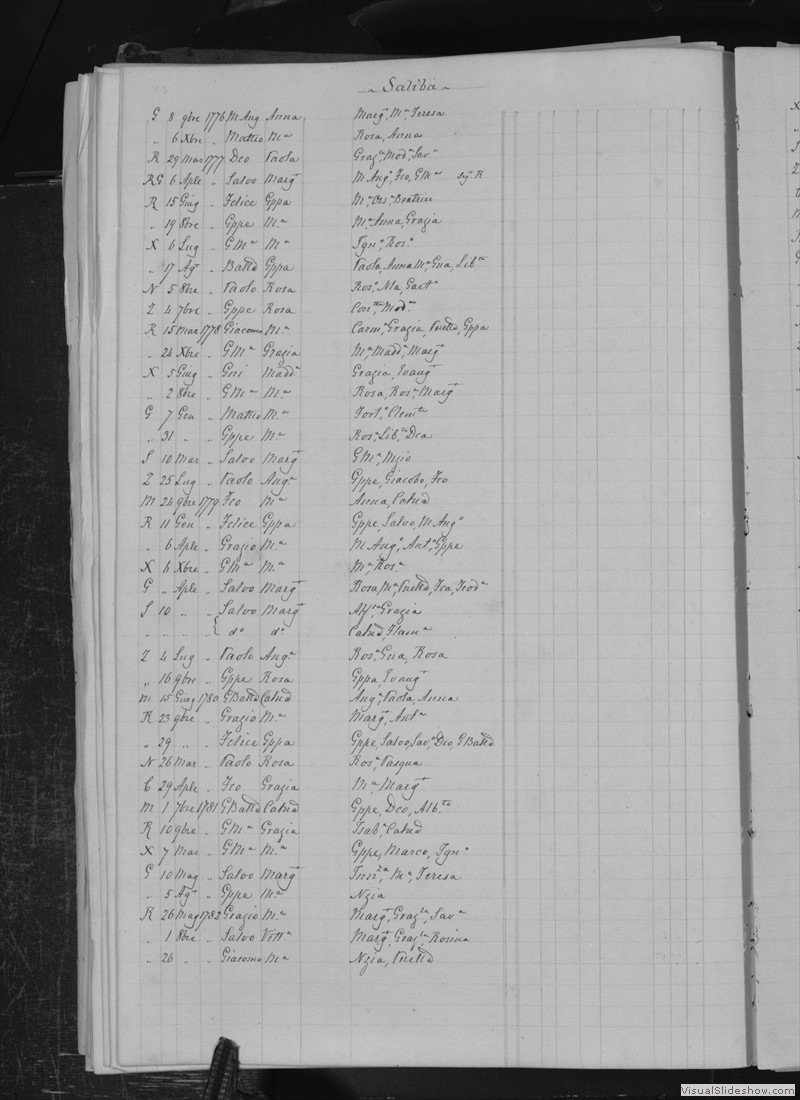 ~ Saliba ~
G 8 9bre 1776 M Ang Anna Margt, Ma Teresa
" 6 Xbre " Matteo Ma Rosa, Anna
R 29 Mar 1777 Dco Paola Grazla, Modo, Sava
RG 6 Aple " Salvo Margt M Ango, Fco, GMa Sig. R
R 15 Giug " Felice Gppa Ma, Orsa, Beatrice
" 19 8bre " Gppe Ma Ma, Anna, Grazia
X 6 Lug " GMa Ma Igno, Rosa
" 17 Agt " Battd Gppa Paola, Anna Ma, Gna, Libta
N 5 8bre " Paolo Rosa Rosa, Nla, Gaeta
Z 4 7bre " Gppe Rosa Conta, Moda
R 15 Mar 1778 Giacomo Ma Carma, Grazia, Puttd, Gppa
" 24 Xbre " GMa Grazia Ma, Madda, Margt
X 5 Giug " Gori Madda Grazia, Evangt
" 2 8bre " GMa Ma Rosa, Rosa, Margt
G 7 Gen " Matteo Ma Forta, Clemta
" 31 " " Gppe Ma Rosa, Libta, Dca
S 10 Mar " Salvo Margt GMa, Mzio
Z 25 Lug " Paolo Anga Gppe, Giacobo, Fco
M 24 9bre 1779 Fco Ma Anna, Catnd
R 11 Gen " Felice Gppa Gppe, Salvo, M Ango
" 6 Aple " Grazio Ma M Ango, Anto, Gppe
X 6 Xbre " GMa Ma Ma, Rosa
G " Aple " Salvo Margt Rosa, Ma, Puttd, Fca, Teoda
S 10 " " Salvo Margt Alfsa, Grazia
" " " " { do do Catnd, Flama
Z 4 Lug " Paolo Anga Rosa, Gna, Rosa
" 16 9bre " Gppe Rosa Gppa, Evangt
M 15 Giug 1780 GBattd Catnd Anga, Paola, Anna
R 23 9bre " Grazio Ma Margt, Anta
" 29 " " Felice Gppa Gppe, Salvo, Savo, Dco, GBattd
N 26 Mar " Paolo Rosa Rosa, Pasqua
C 29 Aple " Fco Grazia Ma, Margt
M 1 7bre 1781 GBattd Catnd Gppe, Dco, Albta
R 10 9bre " GMa Grazia Isaba, Catnd
X 7 Mar " GMa Ma Gppe, Marco, Igno
G 10 Mag " Salvo Margt Ma, Teresa
" 5 Agt " Gppe Ma Nzia
R 26 Mag 1782 Grazio Ma Margt, Grazla, Sava
" 1 8bre " Salvo Vitta Margt, Grazla, Rosina
" 26 " " Giacomo Ma Nzia, Puttd
VisualSlideshow.com